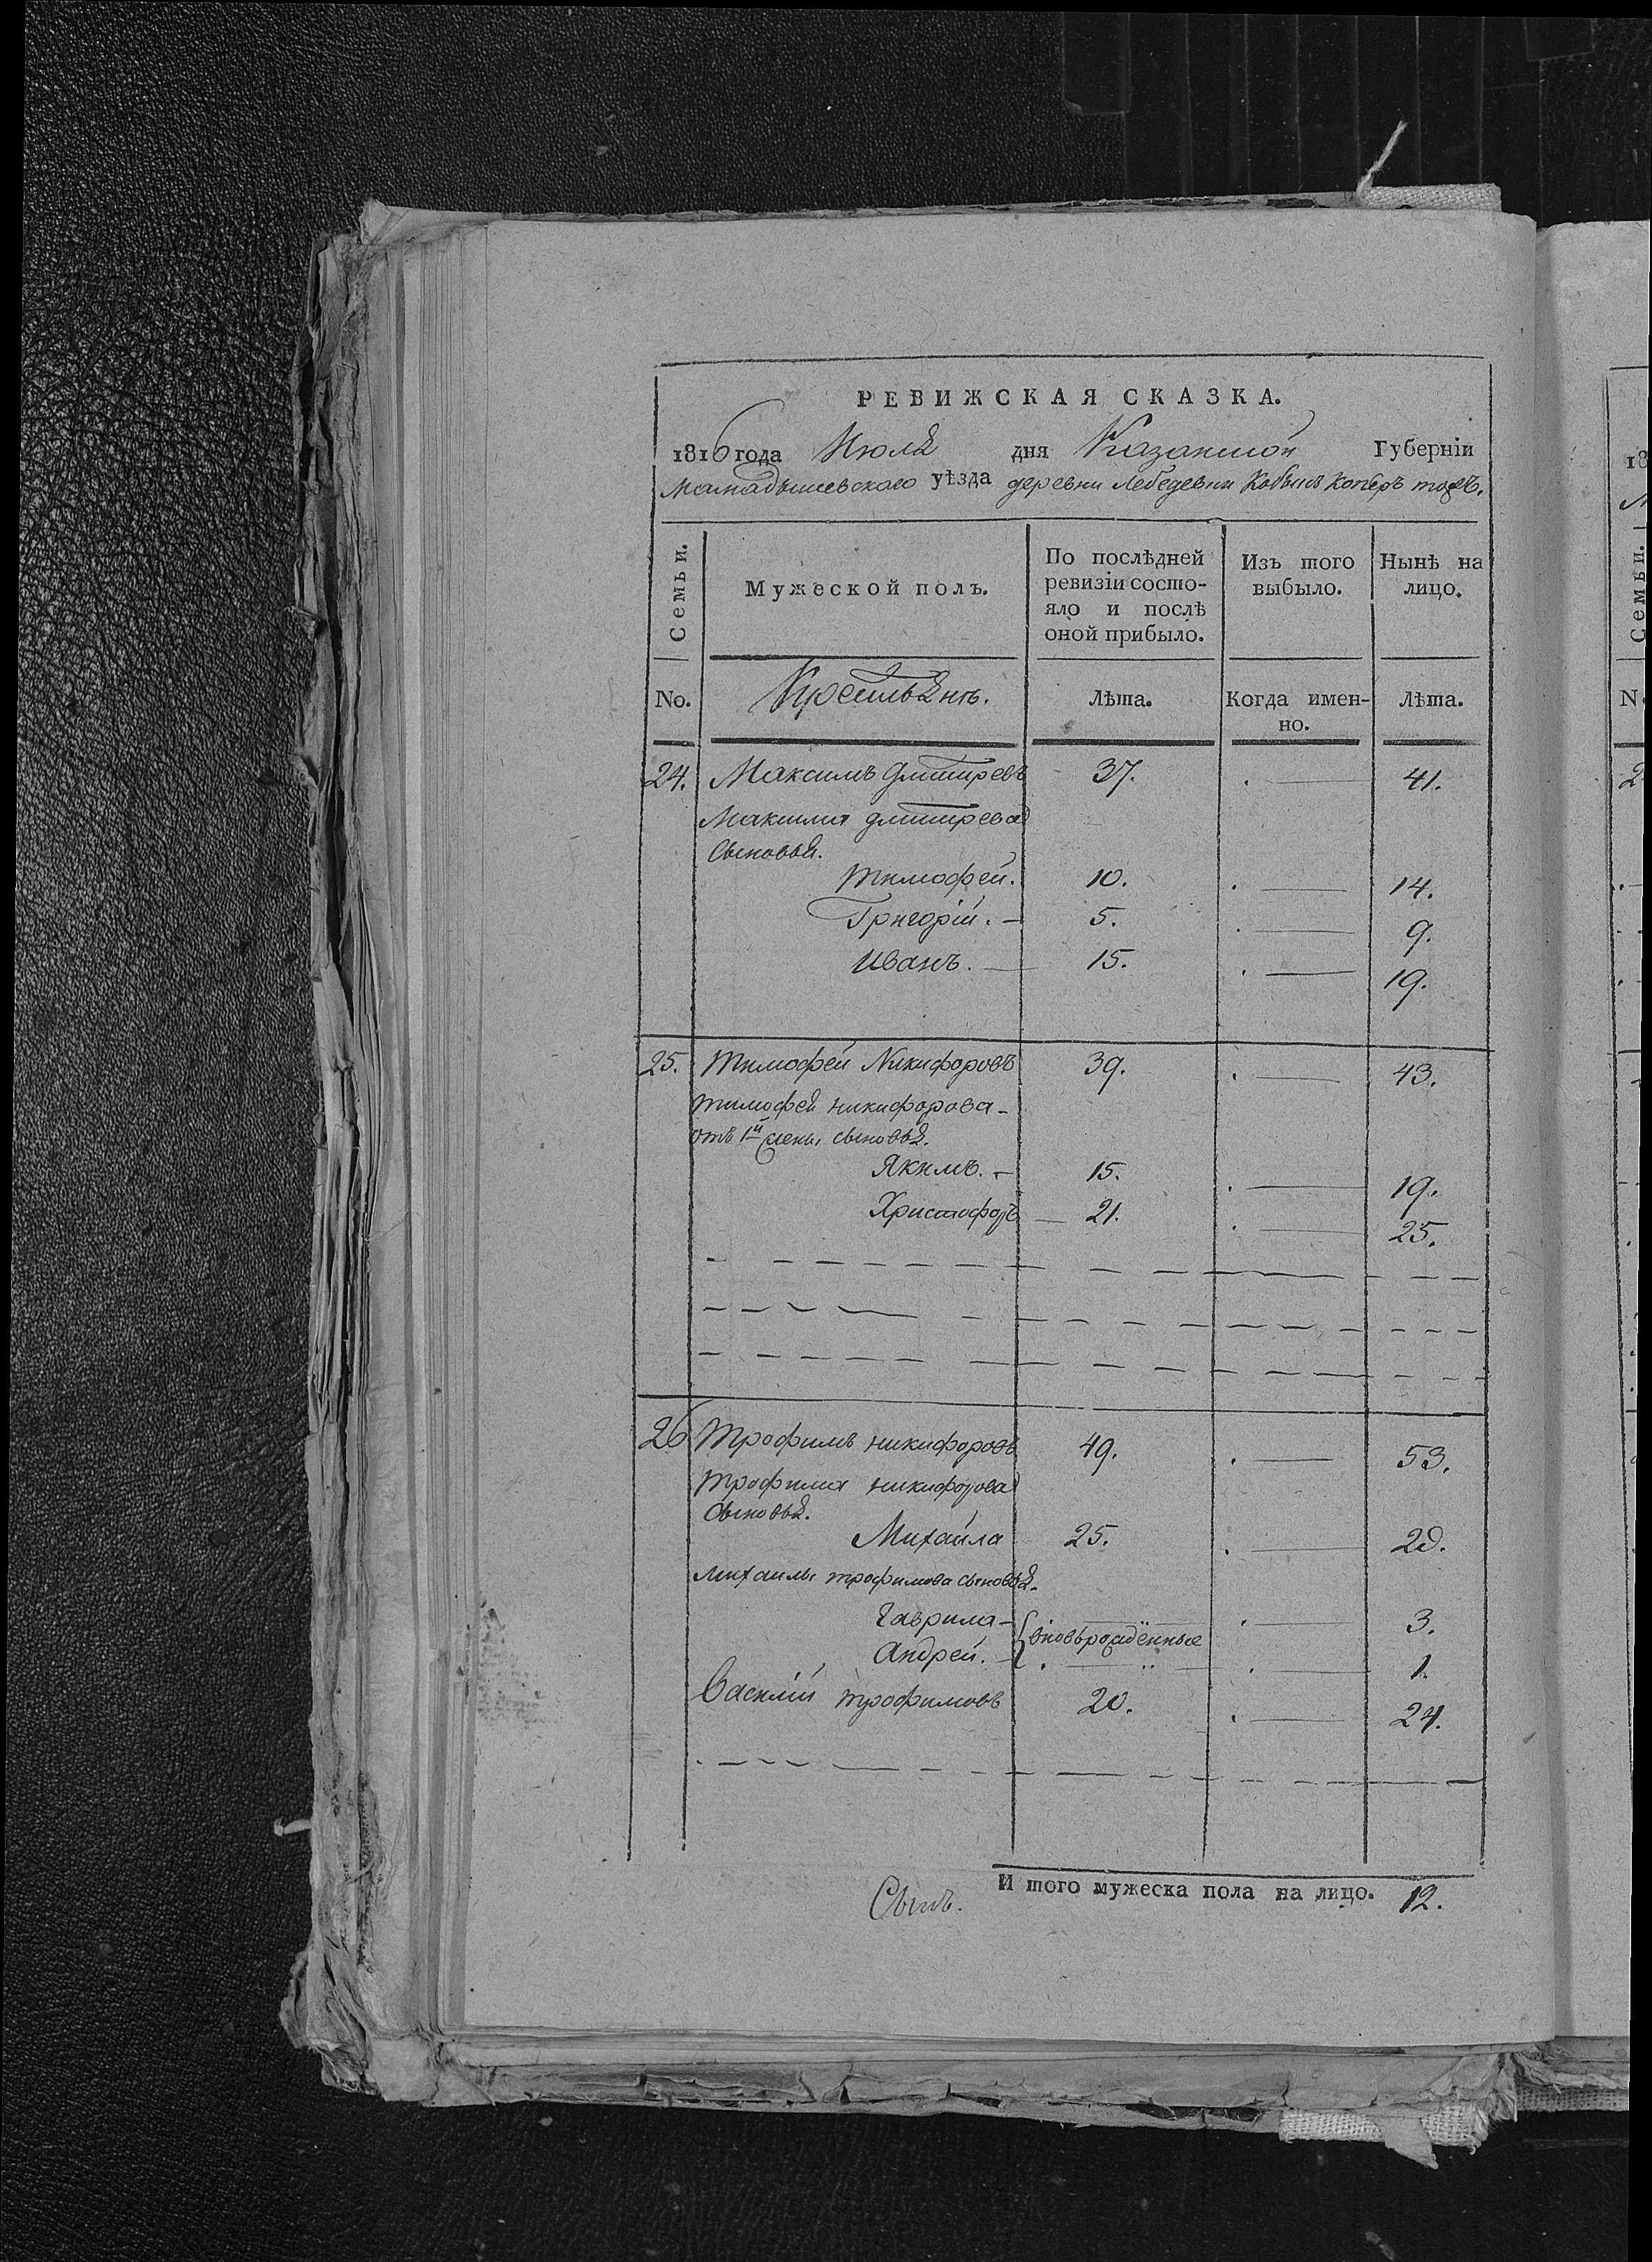 РЕВИЖСКАЯ СКАЗКА.
1816 года Июля дня Казанской Губерніи
Мамадышевского уѣзда деревни Лебедевки Кобылъ Копёръ тожъ.
Семьи. Мужеской полъ. По послѣдней ревизіи состояло и послѣ оной прибыло. Изъ того выбыло. Нынѣ на лицо.
No. Крестьянъ. Лѣта. Когда именно. Лѣта.
24. Максимъ Дмитревъ 37. 41.
Максима Дмитрева
сыновья.
Тимофей. 10. 14.
Григорій. 5. 9.
Иванъ. 15. 19.
25. Тимофей Никифоровъ 39. 43.
Тимофея Никифорова
отъ 1й жены сыновья.
Якимъ. 15. 19.
Христофоръ 21. 25.
26 Трофимъ Никифоровъ 49. 53.
Трофима Никифорова
сыновья.
Михайла 25. 29.
Михайлы Трофимова сыновья.
Гаврила вновьрожденные 3.
Андрей. 1.
Василій Трофимовъ 20. 24.
И того мужеска пола на лицо. 12.